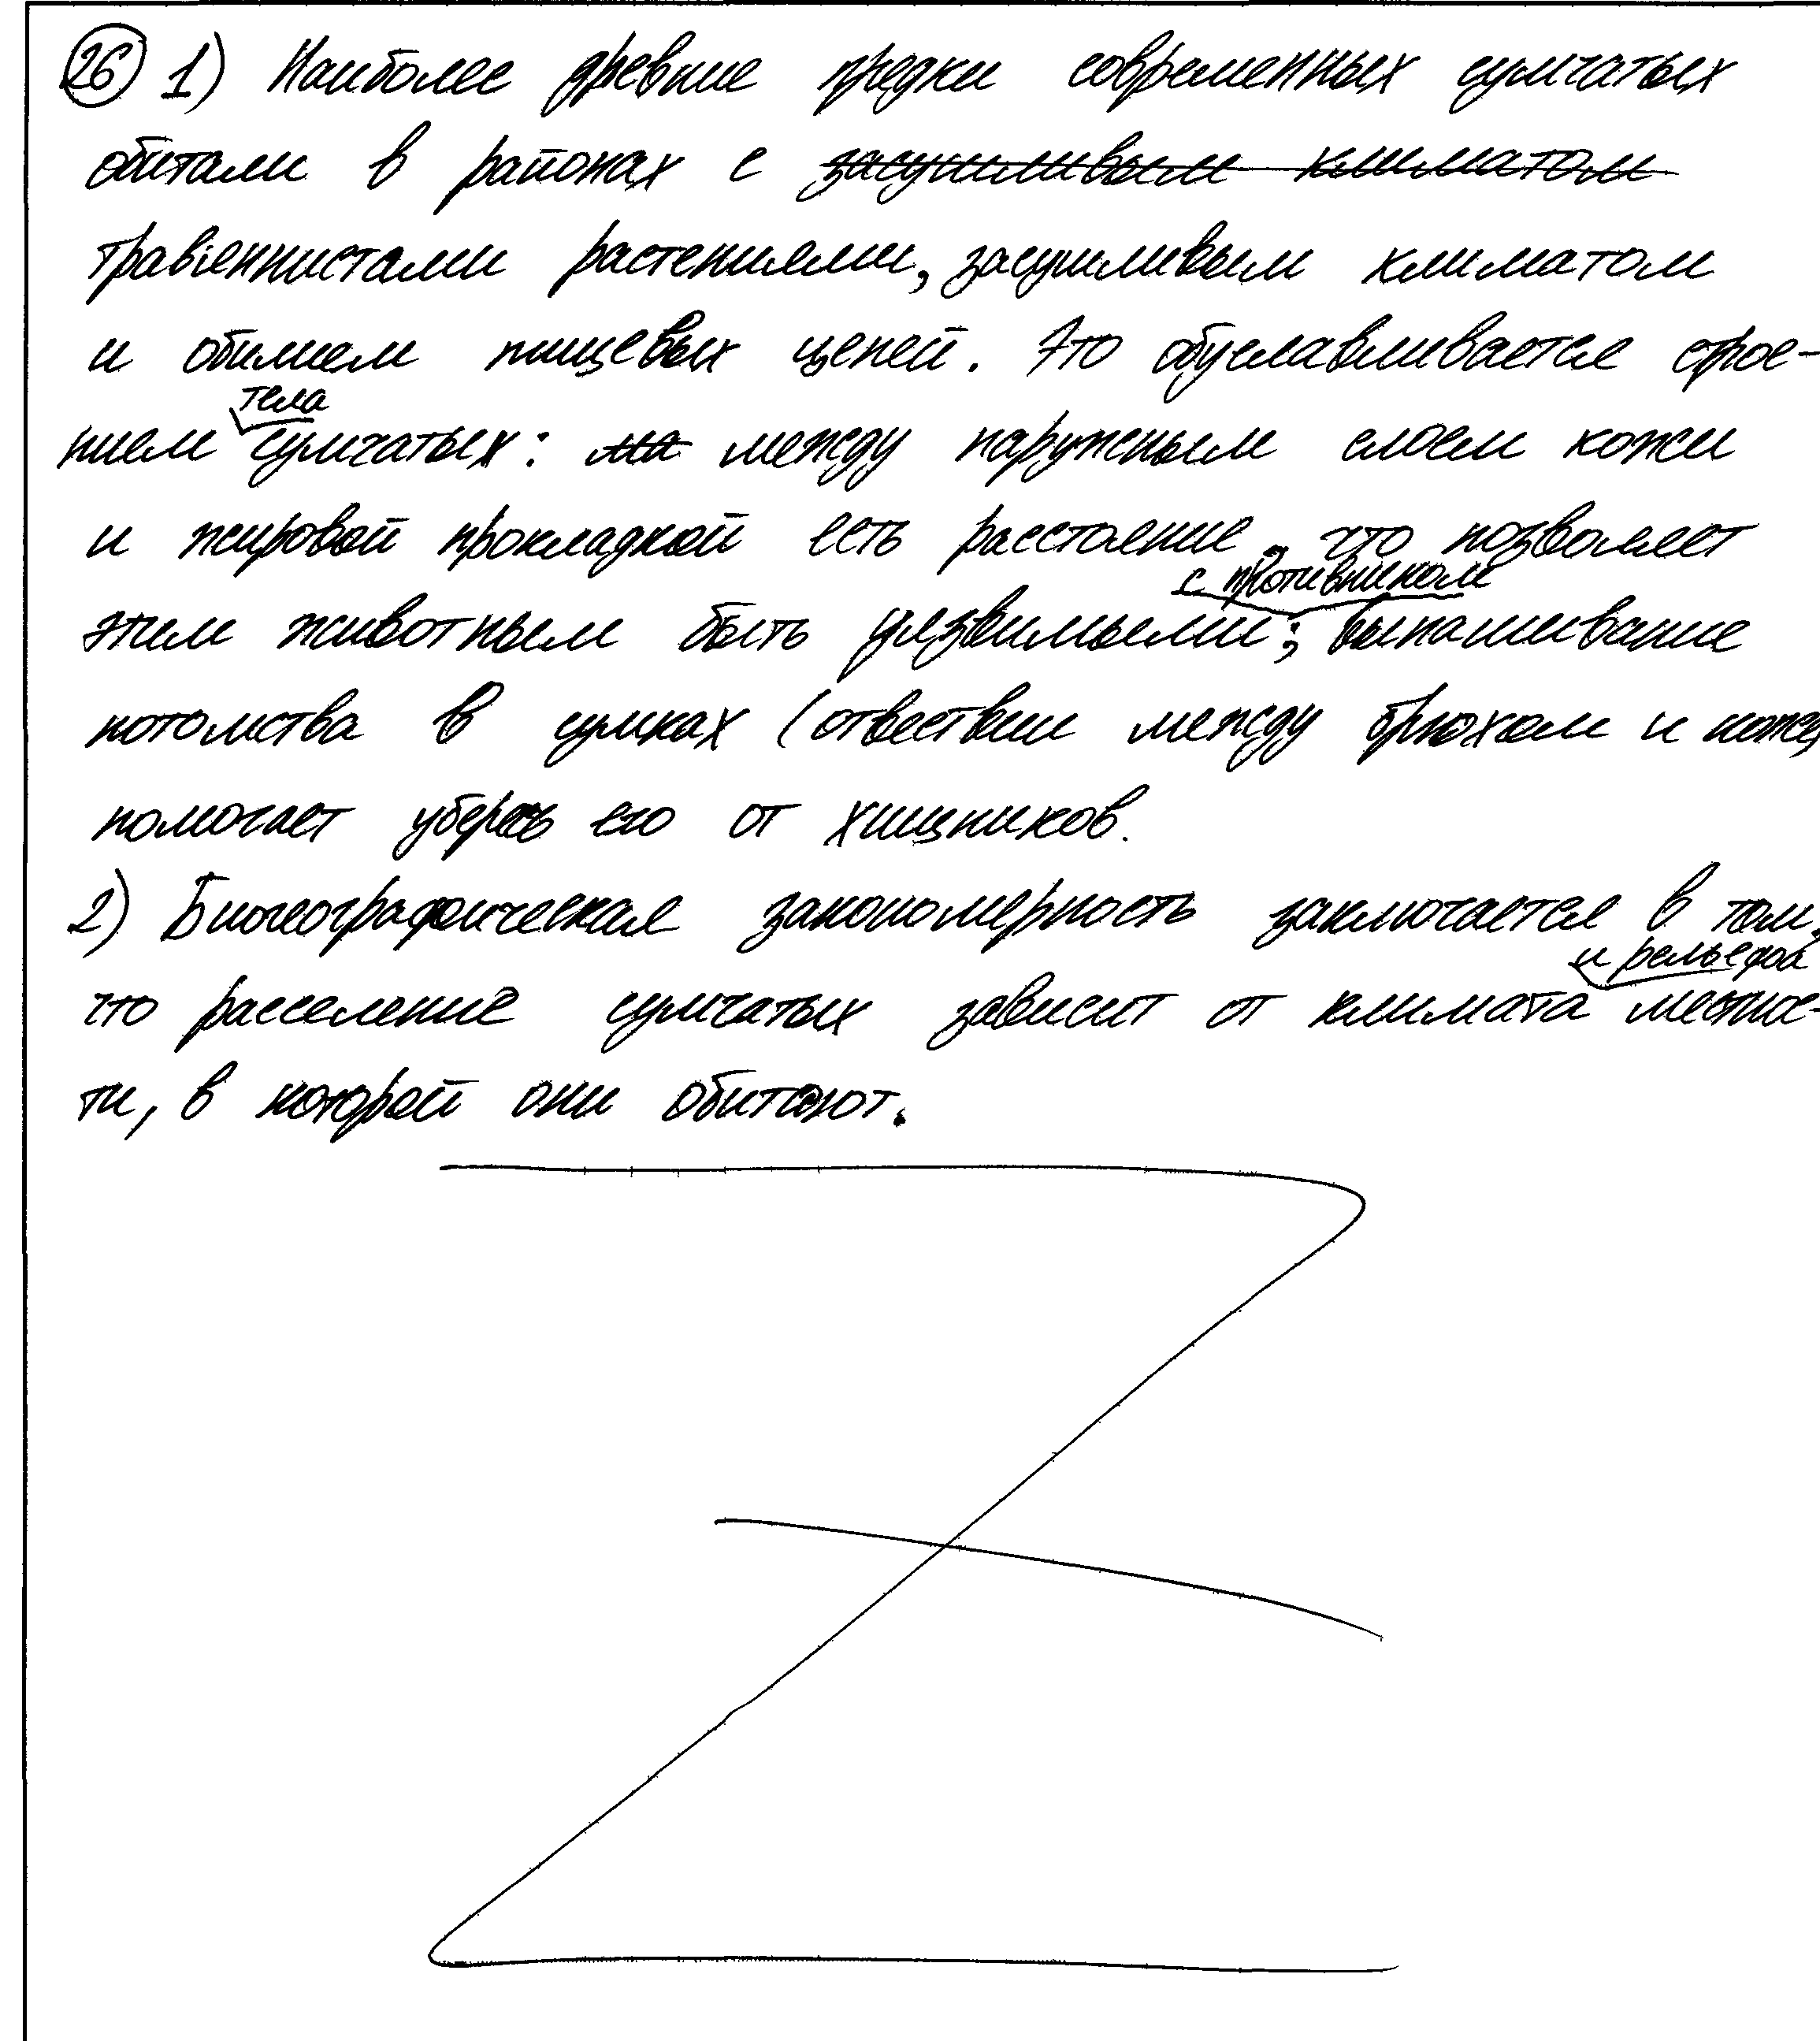 26 1) Наиболее древние предки современных сумчатых
обитали в районах с засушливым климатом
травянистами растениями, засушливым климатом
и обилием пищевых цепей. Это обуславливается строе-
тела
нием сумчатых: на между наружным слоем кожи
и жировой прокладкой есть расстояние, что позволяет
с противником
этим животным быть уязвимыми; вынашивание
потомства в сумках (отвествии между брюхом и кожей
помогает уберечь его от хищников.
2) Биогеографическая закономерность заключается в том,
и рельефа
что расселение сумчатых зависит от климата местнос-
ти, в которой они обитают.